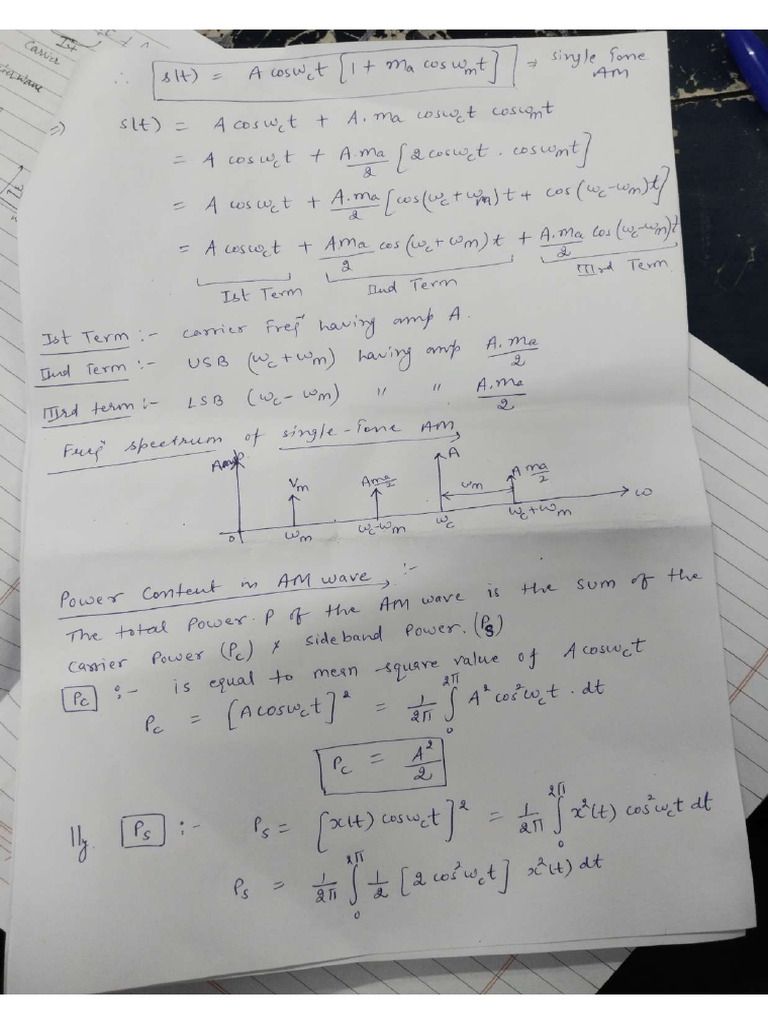 Ist
Carrier
∴ s(t) = A cosω_c t [1 + m_a cosω_m t] ⇒ single tone AM
⇒) s(t) = A cosω_c t + A.m_a cosω_c t cosω_m t
= A cosω_c t + A.m_a/2 [2cosω_c t . cosω_m t]
= A cosω_c t + A.m_a/2 [cos(ω_c+ω_m)t + cos(ω_c-ω_m)t]
= A cosω_c t + Am_a/2 cos(ω_c+ω_m)t + A.m_a/2 cos(ω_c-ω_m)t
Ist Term IInd Term IIIrd Term
Ist Term :- Carrier Freqⁿ having amp A.
IInd Term :- USB (ω_c+ω_m) having amp A.m_a/2
IIIrd term :- LSB (ω_c-ω_m) " " A.m_a/2
Freqⁿ spectrum of single-tone AM
Amp. V_m Am_a/2 A ω_m A m_a/2
0 ω_m ω_c-ω_m ω_c ω_c+ω_m ω
Power Content in AM wave :-
The total Power P of the AM wave is the sum of the
Carrier Power (P_c) & sideband Power. (P_s)
P_c :- is equal to mean-square value of A cosω_c t
P_c = [A cosω_c t]² = 1/2π ∫₀^2π A² cos²ω_c t . dt
P_c = A²/2
lly P_s :- P_s = [x(t) cosω_c t]² = 1/2π ∫₀^2π x²(t) cos²ω_c t dt
P_s = 1/2π ∫₀^2π 1/2 [2 cos²ω_c t] x²(t) dt